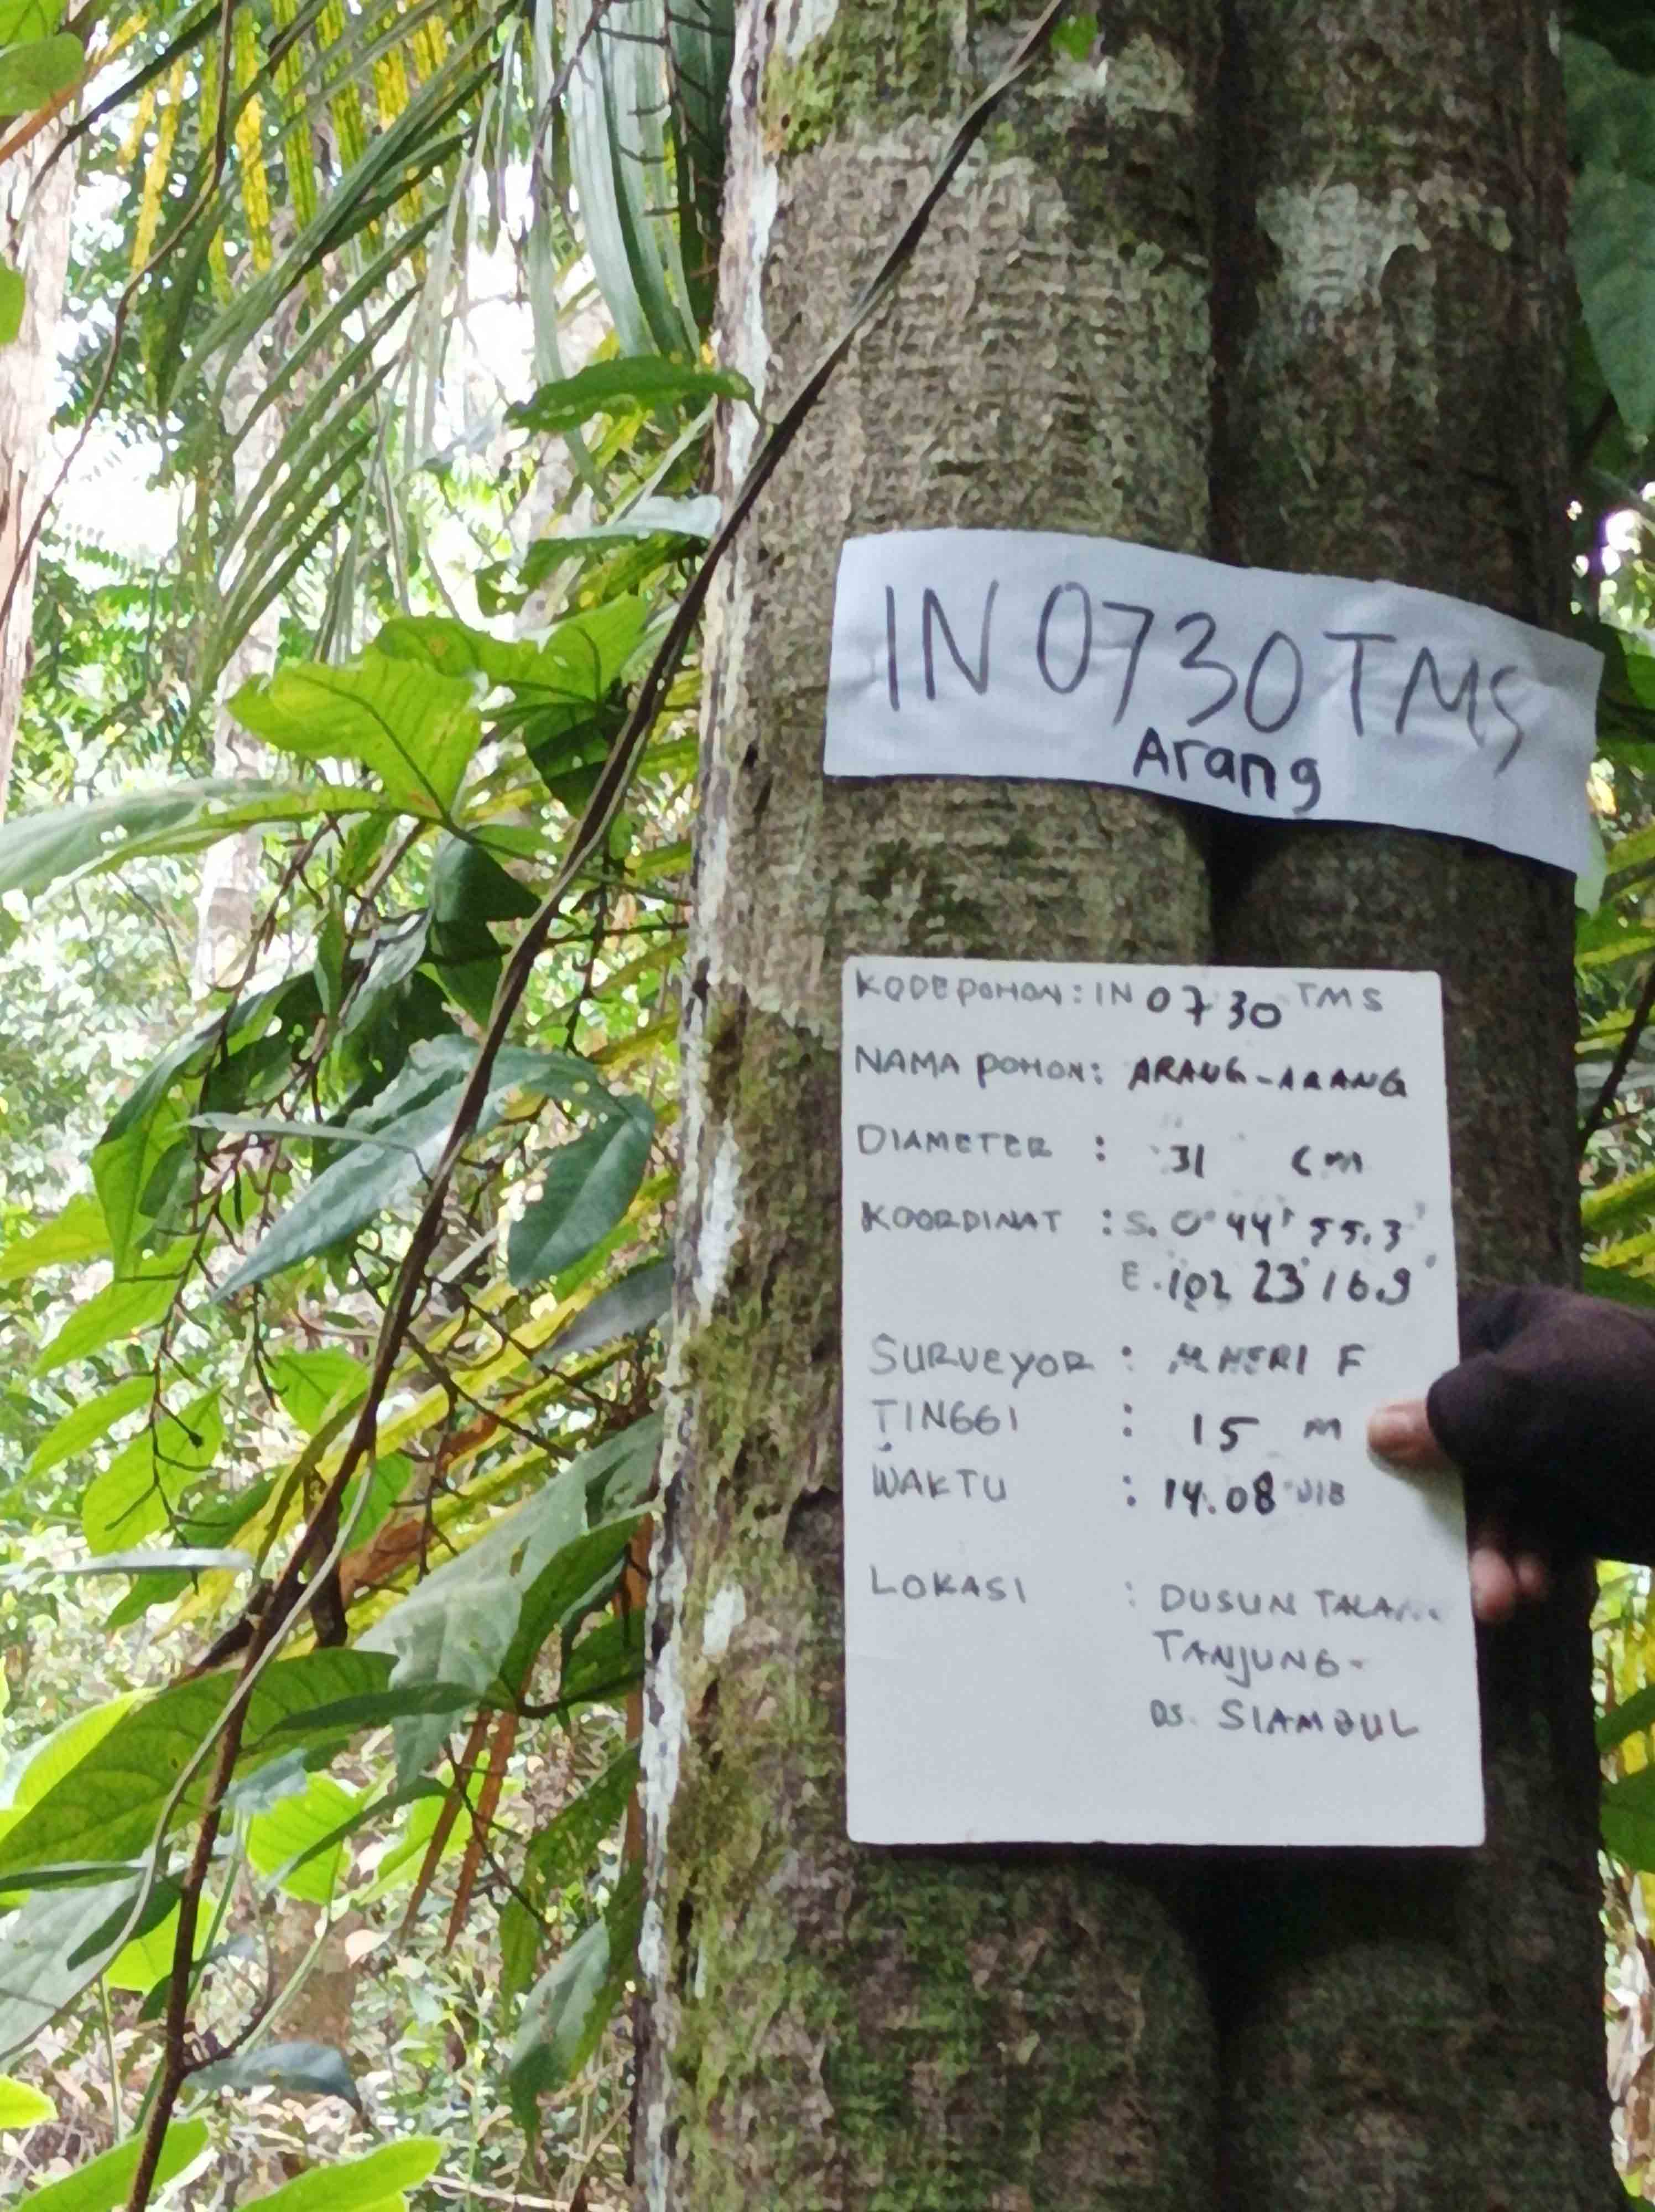 IN 0730 TMS
Arang
KODE POHON: IN 0730 TMS
NAMA POHON: ARANG-ARANG
DIAMETER : 31 cm
KOORDINAT : S. 0° 44' 55.3"
E. 102 23' 16.9"
SURVEYOR : M HERI F
TINGGI : 15 M
WAKTU : 14.08 WIB
LOKASI : DUSUN
TANJUNG-
DS. SIAMBUL